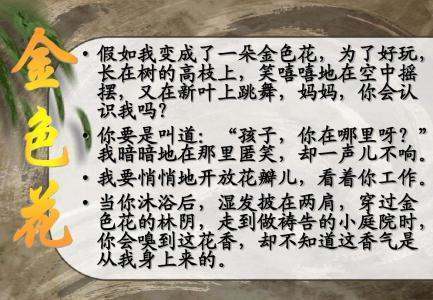 金色花
假如我变成了一朵金色花，为了好玩，
长在树的高枝上，笑嘻嘻地在空中摇
摆，又在新叶上跳舞，妈妈，你会认
识我吗？
你要是叫道：“孩子，你在哪里呀？”
我暗暗地在那里匿笑，却一声儿不响。
我要悄悄地开放花瓣儿，看着你工作。
当你沐浴后，湿发披在两肩，穿过金
色花的林阴，走到做祷告的小庭院时，
你会嗅到这花香，却不知道这香气是
从我身上来的。